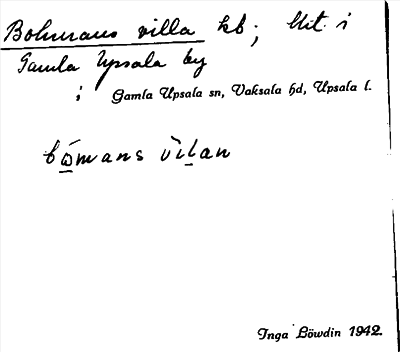 Bohmans villa kb; litt. i
Gamla Upsala by
i Gamla Upsala sn, Vaksala hd, Upsala l.
bώ̱mans vìḻan
Inga Löwdin 1942.